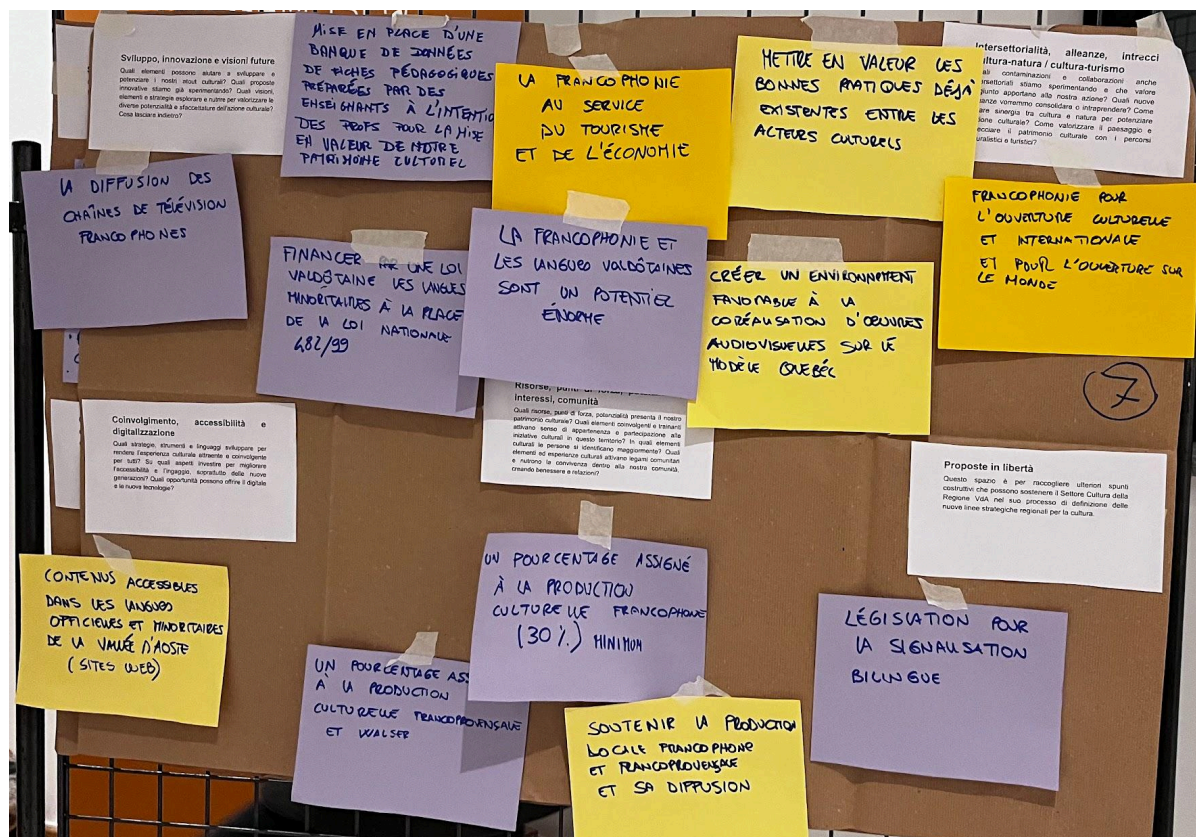 Sviluppo, innovazione e visioni future
Quali elementi possono aiutare a sviluppare e
potenziare i nostri atout culturali? Quali proposte
innovative stiamo già sperimentando? Quali visioni,
elementi e strategie esplorare e nutrire per valorizzare le
diverse potenzialità e sfaccettature dell'azione culturale?
Cosa lasciare indietro?
MISE EN PLACE D'UNE
BANQUE DE DONNÉES
DE FICHES PÉDAGOGIQUES
PRÉPARÉES PAR DES
ENSEIGNANTS À L'INTENTIO
DES PROFS POUR LA MISE
EN VALEUR DE NOTRE
PATRIMOINE CULTUREL
LA FRANCOPHONIE
AU SERVICE
DU TOURISME
ET DE L'ÉCONOMIE
METTRE EN VALEUR LES
BONNES PRATIQUES DÉJÀ
EXISTENTES ENTRE LES
ACTEURS CULTURELS
Intersettorialità, alleanze, intrecci
ultura-natura / cultura-turismo
ali contaminazioni e collaborazioni anche
ersettoriali stiamo sperimentando e che valore
giunto apportano alla nostra azione? Quali nuove
anze vorremmo consolidare o intraprendere? Come
are sinergia tra cultura e natura per potenziare
ione culturale? Come valorizzare il paesaggio e
ecciare il patrimonio culturale con i percorsi
uralistici e turistici?
LA DIFFUSION DES
CHAÎNES DE TÉLÉVISION
FRANCOPHONES
FINANCER PAR UNE LOI
VALDÔTAINE LES LANGUES
MINORITAIRES À LA PLACE
DE LA LOI NATIONALE
482/99
LA FRANCOPHONIE ET
LES LANGUES VALDÔTAINES
SONT UN POTENTIEL
ÉNORME
CRÉER UN ENVIRONNEMENT
FAVORABLE À LA
CORÉALISATION D'ŒUVRES
AUDIOVISUELLES SUR LE
MODÈLE QUEBÉC
FRANCOPHONIE POUR
L'OUVERTURE CULTURELLE
ET INTERNATIONALE
ET POUR L'OUVERTURE SUR
LE MONDE
7
Coinvolgimento, accessibilità e
digitalizzazione
Quali strategie, strumenti e linguaggi sviluppare per
rendere l'esperienza culturale attraente e coinvolgente
per tutti? Su quali aspetti investire per migliorare
l'accessibilità e l'ingaggio, soprattutto delle nuove
generazioni? Quali opportunità possono offrire il digitale
e le nuove tecnologie?
Risorse, punti di forza,
interessi, comunità
Quali risorse, punti di forza, potenzialità presenta il nostro
patrimonio culturale? Quali elementi coinvolgenti e trainanti
attivano senso di appartenenza e partecipazione alle
iniziative culturali in questo territorio? In quali elementi
culturali le persone si identificano maggiormente? Quali
elementi ed esperienze culturali attivano legami comunitari
e nutrono la convivenza dentro alla nostra comunità,
creando benessere e relazioni?
Proposte in libertà
Questo spazio è per raccogliere ulteriori spunti
costruttivi che possono sostenere il Settore Cultura della
Regione VdA nel suo processo di definizione delle
nuove linee strategiche regionali per la cultura.
CONTENUS ACCESSIBLES
DANS LES LANGUES
OFFICIELLES ET MINORITAIRES
DE LA VALLÉE D'AOSTE
(SITES WEB)
UN POURCENTAGE ASS
À LA PRODUCTION
CULTURELLE FRANCOPROVENÇALE
ET WALSER
UN POURCENTAGE ASSIGNÉ
À LA PRODUCTION
CULTURELLE FRANCOPHONE
(30%) MINIMUM
SOUTENIR LA PRODUCTION
LOCALE FRANCOPHONE
ET FRANCOPROVENÇALE
ET SA DIFFUSION
LÉGISLATION POUR
LA SIGNALISATION
BILINGUE